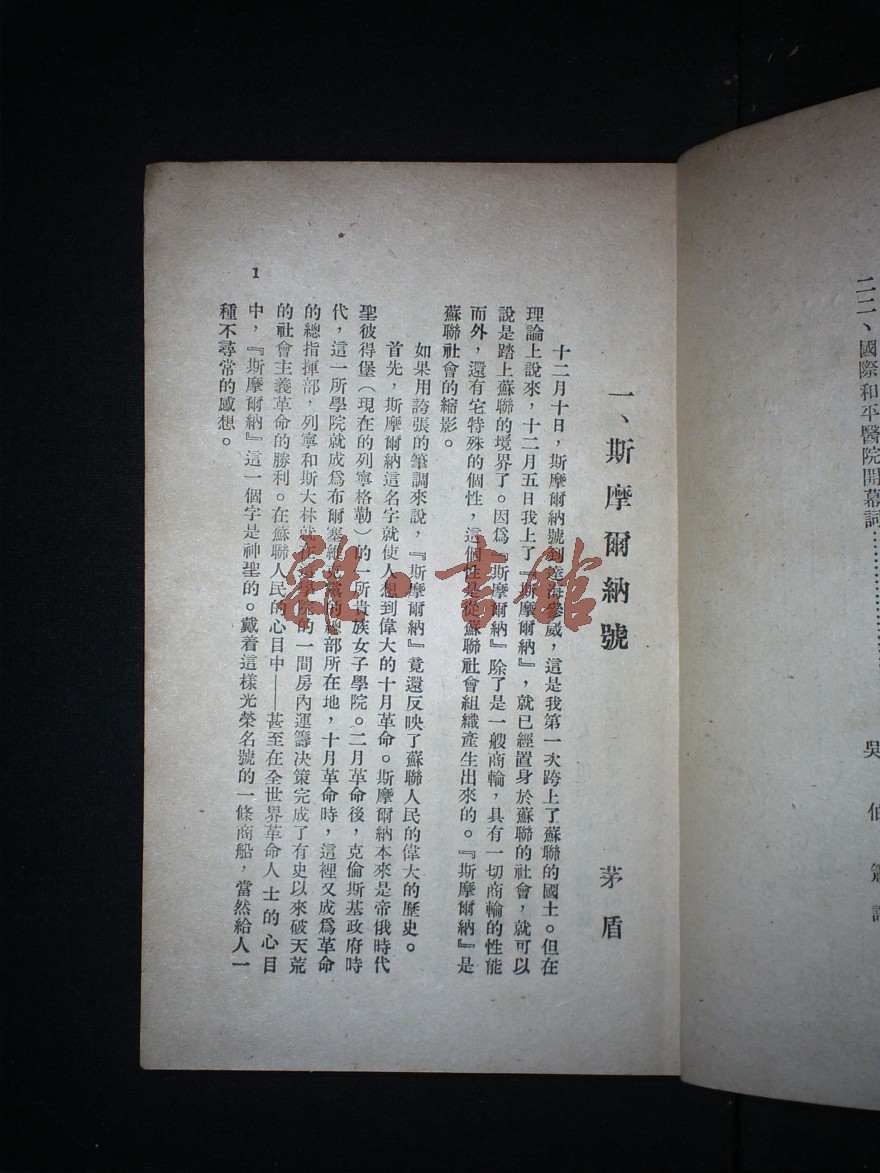 二二、國際和平醫院開幕詞……………………
吳伯簫
一、斯摩爾納號
茅盾
十二月十日，斯摩爾納號到達海參崴，這是我第一次跨上了蘇聯的國土。但在
理論上說來，十二月五日我上了『斯摩爾納』，就已經置身於蘇聯的社會，就可以
說是踏上蘇聯的境界了。因爲『斯摩爾納』除了是一艘商輪，具有一切商輪的性能
而外，還有它特殊的個性，這個性是從蘇聯社會組織產生出來的。『斯摩爾納』是
蘇聯社會的縮影。
如果用誇張的筆調來說，『斯摩爾納』竟還反映了蘇聯人民的偉大的歷史。
首先，斯摩爾納這名字就使人想到偉大的十月革命。斯摩爾納本來是帝俄時代
聖彼得堡（現在的列寧格勒）的一所貴族女子學院。二月革命後，克倫斯基政府時
代，這一所學院就成爲布爾塞維克黨的總部所在地，十月革命時，這裡又成爲革命
的總指揮部，列寧和斯大林就在這學院的一間房內運籌决策完成了有史以來破天荒
的社會主義革命的勝利。在蘇聯人民的心目中——甚至在全世界革命人士的心目
中，『斯摩爾納』這一個字是神聖的。戴着這樣光榮名號的一條商船，當然給人一
種不尋常的感想。
1
雜·書館